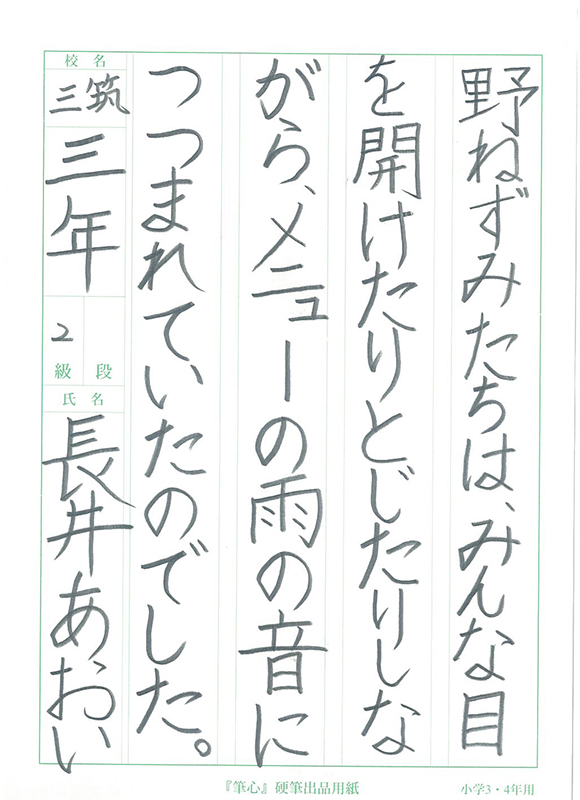 野ねずみたちは、みんな目
を開けたりとじたりしな
がら、メニューの雨の音に
つつまれていたのでした。
校名
三筑
三年
2
級段
氏名
長井あおい
『筆心』硬筆出品用紙
小学3・4年用